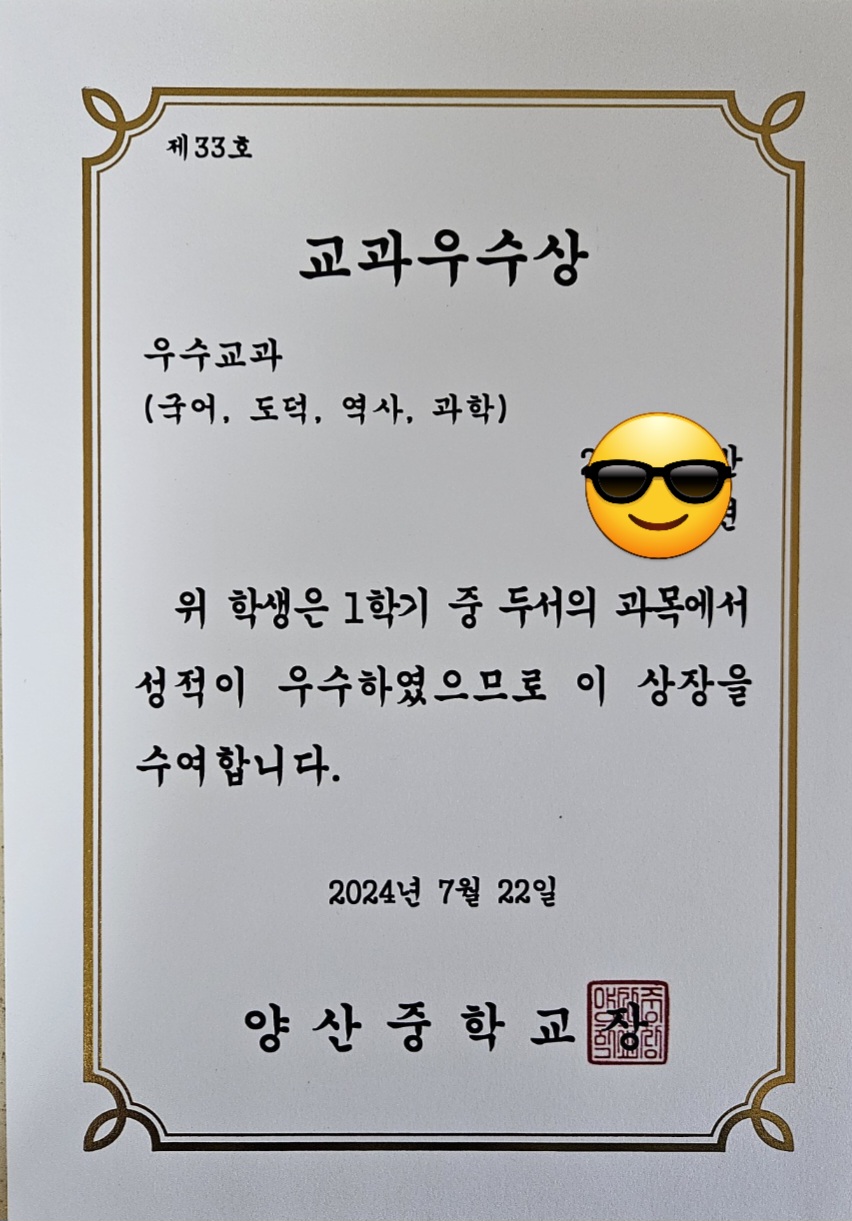 제33호
교과우수상
우수교과
(국어, 도덕, 역사, 과학)
위 학생은 1학기 중 두서의 과목에서
성적이 우수하였으므로 이 상장을
수여합니다.
2024년 7월 22일
양산중학교장